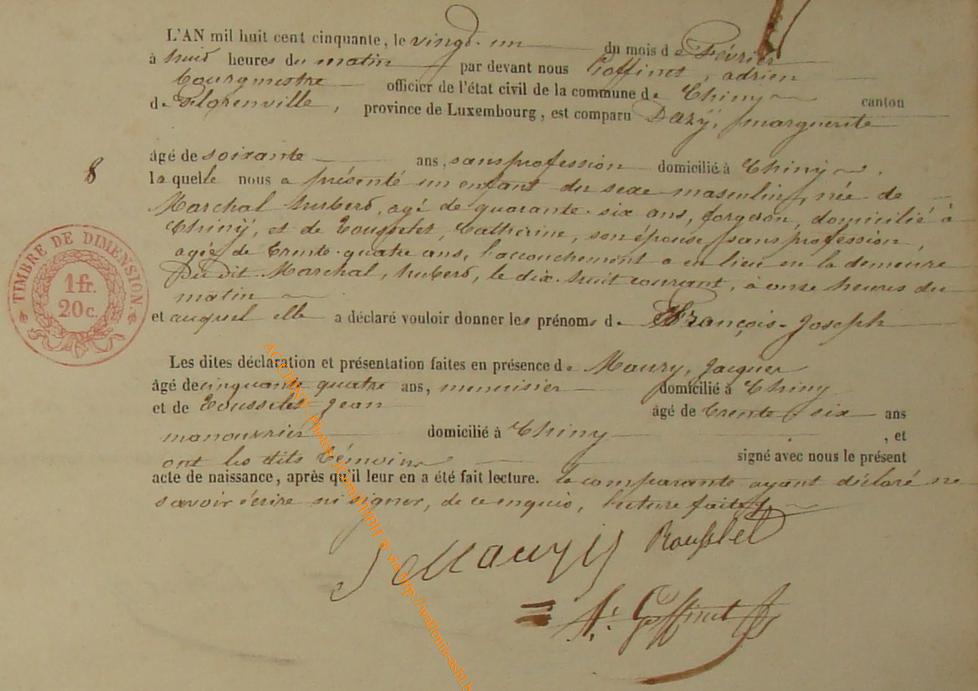 L'AN mil huit cent cinquante, le vingt-un du mois de Février
à huit heures du matin par devant nous Goffinet, adrien
bourgmestre officier de l'état civil de la commune de Chiny canton
de Florenville, province de Luxembourg, est comparu Dazÿ, marguerite
8
âgé de soixante ans, sans profession domicilié à Chiny.
laquelle nous a présenté un enfant du sexe masculin, née de
Marchal hubert, agé de quarante-six ans, forgeron, domicilié à
Chinÿ, et de Catherine, son épouse, sans profession,
agée de trente-quatre ans, l'accouchement a eu lieu en la demeure
du dit Marchal, hubert, le dix-huit courant, à onze heures du
matin
et auquel elle a déclaré vouloir donner les prénoms de François-Joseph
TIMBRE DE DIMENSION.
1 fr.
20 c.
Les dites déclaration et présentation faites en présence de Maury, Jacques
âgé de cinquante quatre ans, menuisier domicilié à Chiny
et de Jean âgé de trente-six ans
manouvrier domicilié à Chiny, et
ont les dits témoins signé avec nous le présent
acte de naissance, après qu'il leur en a été fait lecture. la comparante ayant déclaré ne
savoir écrire ni signer, de ce enquis, lecture faite
J Maury
A. Goffinet